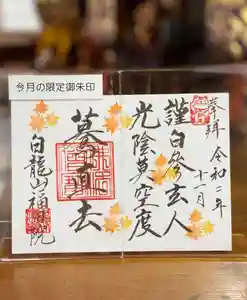 今月の限定御朱印
奉拝 令和二年
十一月
謹白參玄人
光陰莫空度
驀直去
白龍山